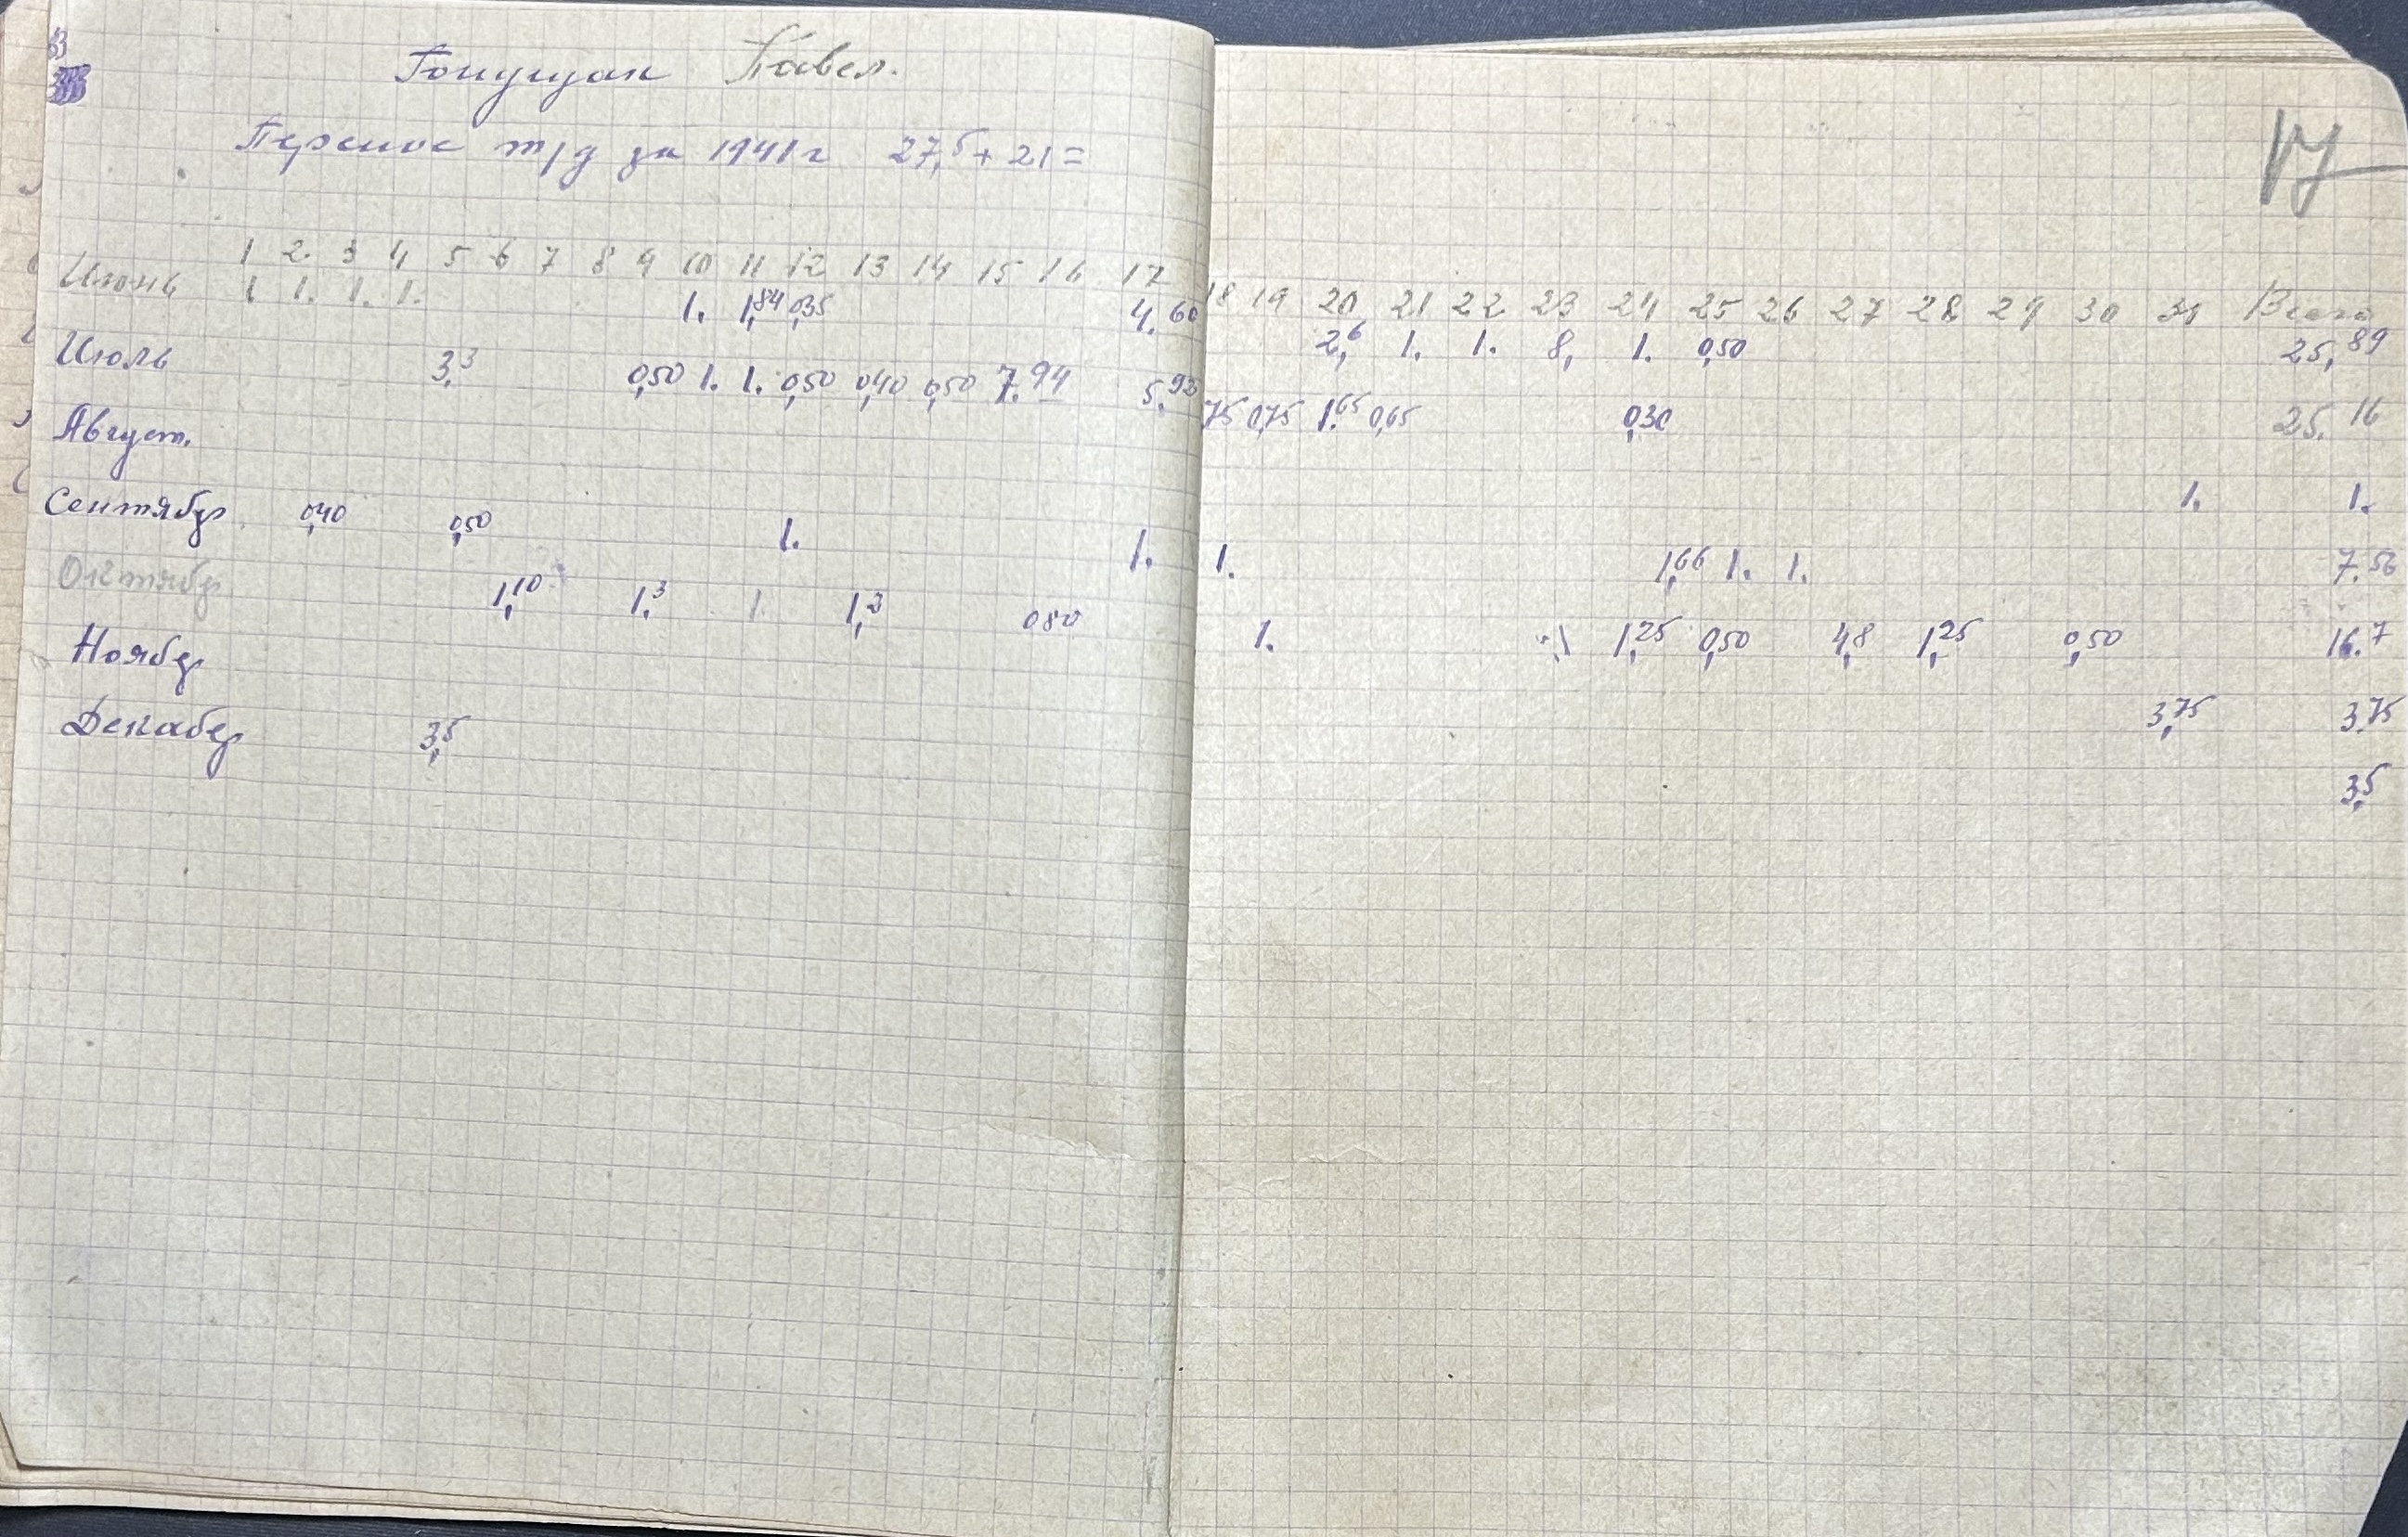 Гончман Павел.
Перенос т/д за 1941 г 27,5 + 21 =
1 2. 3 4 5 6 7 8 9 10 11 12 13 14 15 16 17 18 19 20 21 22 23 24 25 26 27 28 29 30 31 Всего
Июнь 1 1. 1. 1. 1. 1,84 0,35 4.60 2,6 1. 1. 8, 1. 0,50 25,89
Июль 3,3 0,50 1. 1. 0,50 0,40 0,50 7.94 5.93 75 0,75 1.65 0,65 0,30 25.16
Август. 1. 1.
Сентябр. 0,40 0,50 1. 1. 1. 1,66 1. 1. 7.56
Октябр 1,10 1,3 1. 1,3 0 80 1. 1,25 0,50 4,8 1,25 0,50 16.7
Ноябр 3,75 3,75
Декабер 3,5 3,5